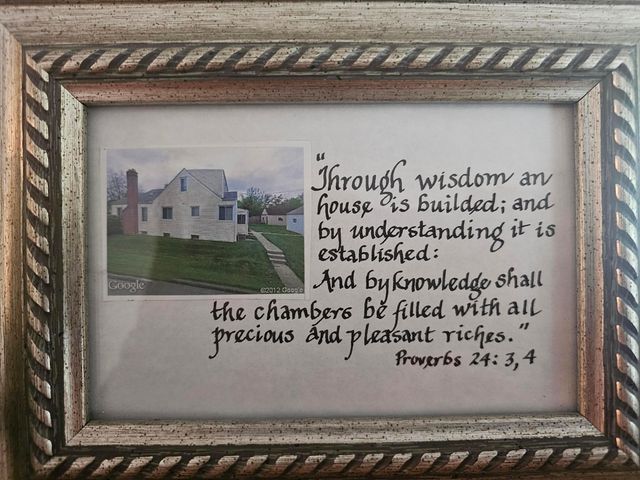 "Through wisdom an
house is builded; and
by understanding it is
established:
And by knowledge shall
the chambers be filled with all
precious and pleasant riches."
Proverbs 24: 3, 4
Google
©2012 Google